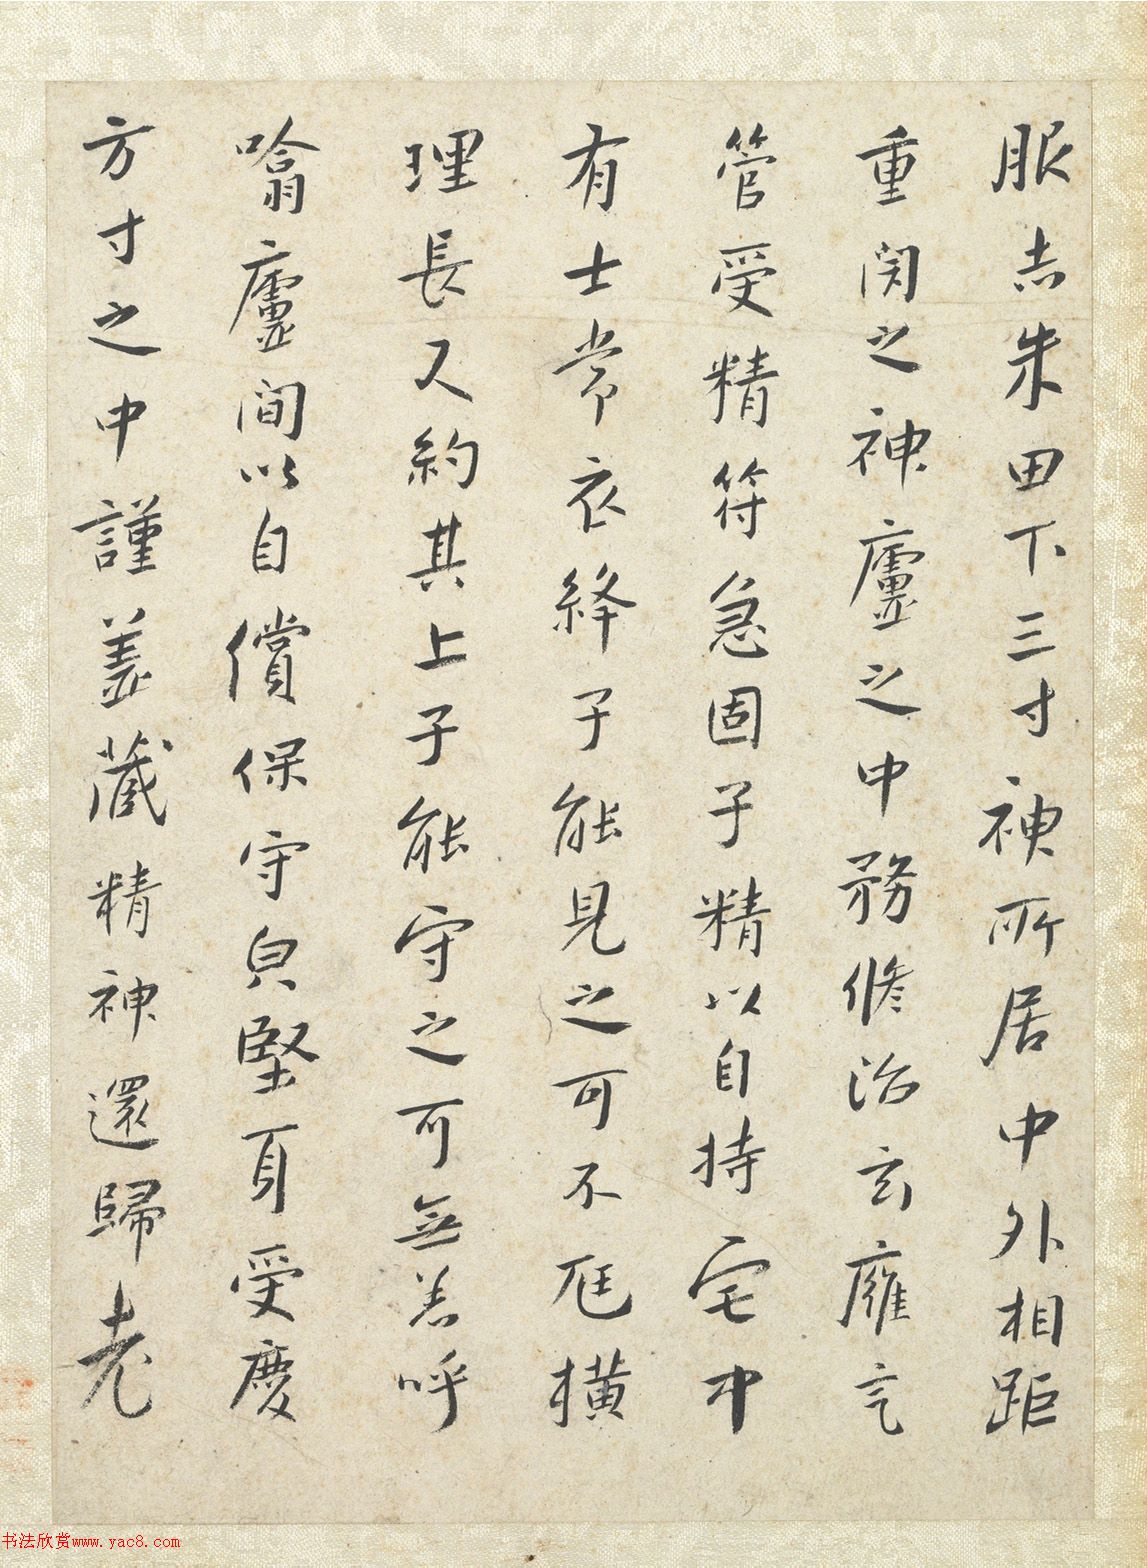 服志朱田下三寸神所居中外相距
重闭之神廬之中務修治玄廱氣
管受精符急固子精以自持宅中
有士常衣絳子能見之可不厄横
理長尺約其上子能守之可無恙呼
噏廬間以自償保守皃堅身受慶
方寸之中謹蓋藏精神還歸老
书法欣赏www.yac8.com